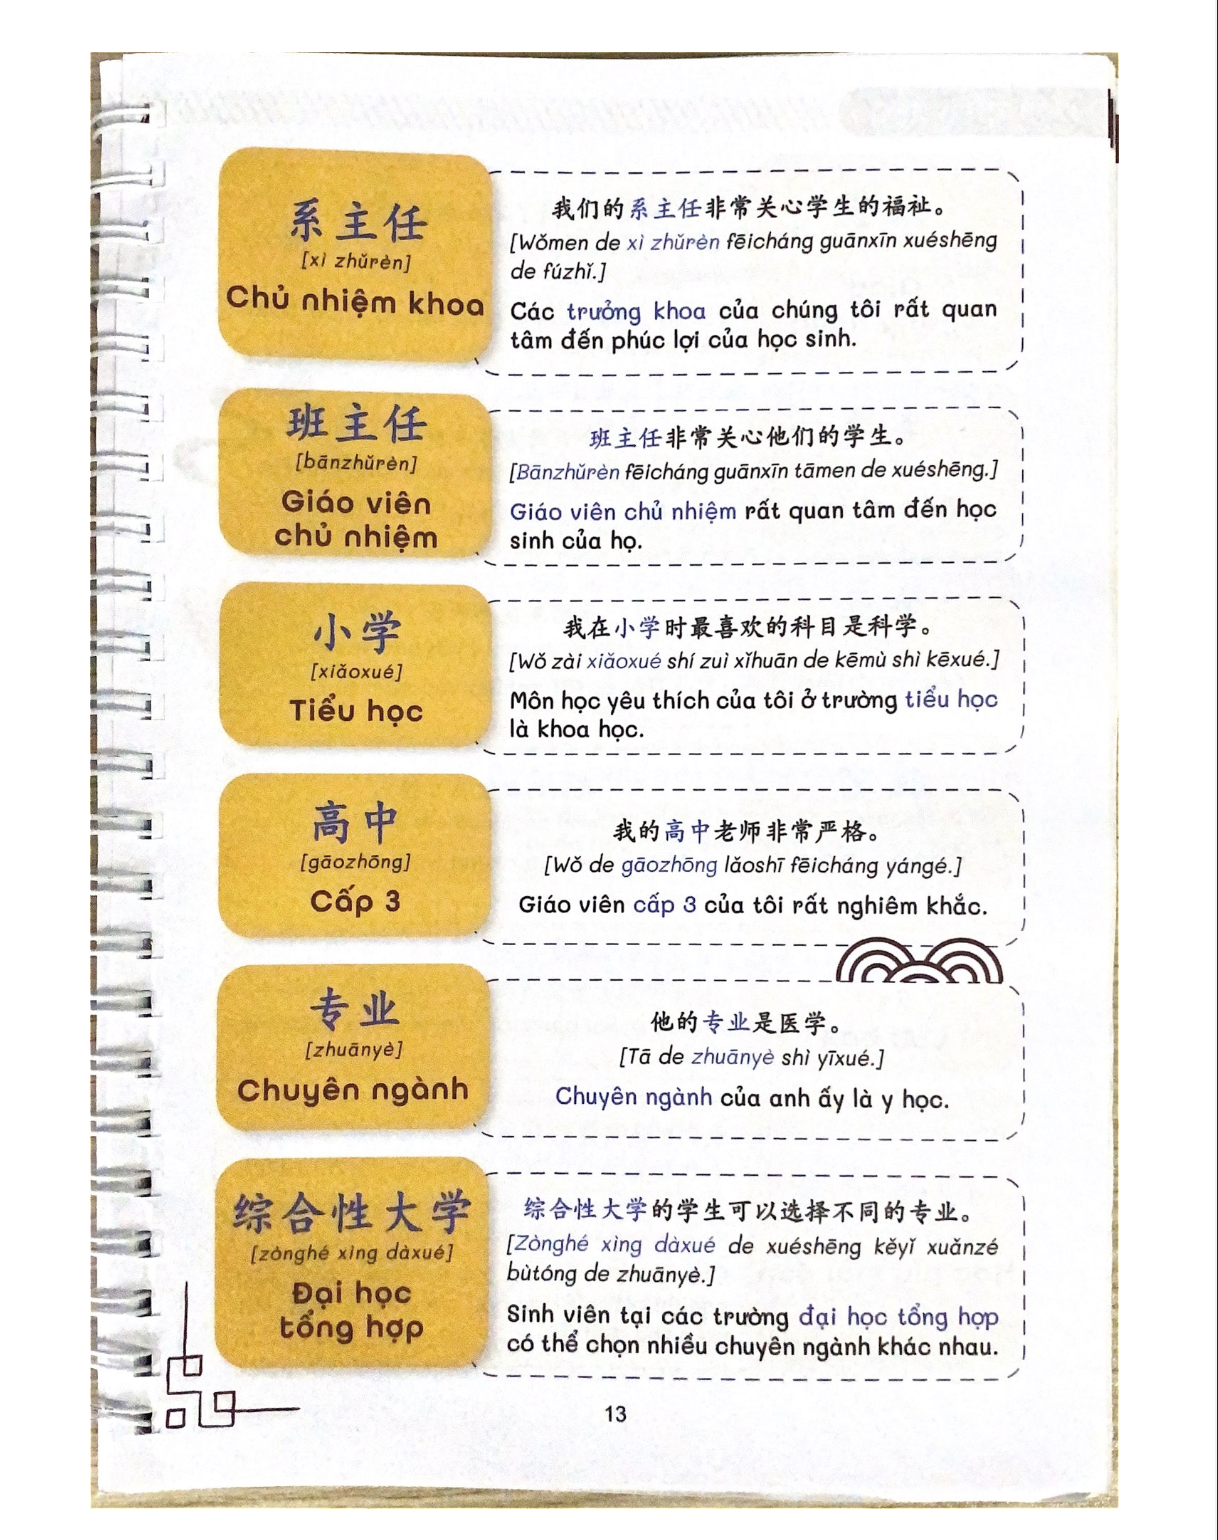 系主任
[xì zhǔrèn]
Chủ nhiệm khoa
我们的系主任非常关心学生的福祉。
[Wǒmen de xì zhǔrèn fēicháng guānxīn xuéshēng
de fúzhǐ.]
Các trưởng khoa của chúng tôi rất quan
tâm đến phúc lợi của học sinh.
班主任
[bānzhǔrèn]
Giáo viên
chủ nhiệm
班主任非常关心他们的学生。
[Bānzhǔrèn fēicháng guānxīn tāmen de xuéshēng.]
Giáo viên chủ nhiệm rất quan tâm đến học
sinh của họ.
小学
[xiǎoxué]
Tiểu học
我在小学时最喜欢的科目是科学。
[Wǒ zài xiǎoxué shí zuì xǐhuān de kēmù shì kēxué.]
Môn học yêu thích của tôi ở trường tiểu học
là khoa học.
高中
[gāozhōng]
Cấp 3
我的高中老师非常严格。
[Wǒ de gāozhōng lǎoshī fēicháng yángé.]
Giáo viên cấp 3 của tôi rất nghiêm khắc.
专业
[zhuānyè]
Chuyên ngành
他的专业是医学。
[Tā de zhuānyè shì yīxué.]
Chuyên ngành của anh ấy là y học.
综合性大学
[zònghé xìng dàxué]
Đại học
tổng hợp
综合性大学的学生可以选择不同的专业。
[Zònghé xìng dàxué de xuéshēng kěyǐ xuǎnzé
bùtóng de zhuānyè.]
Sinh viên tại các trường đại học tổng hợp
có thể chọn nhiều chuyên ngành khác nhau.
13